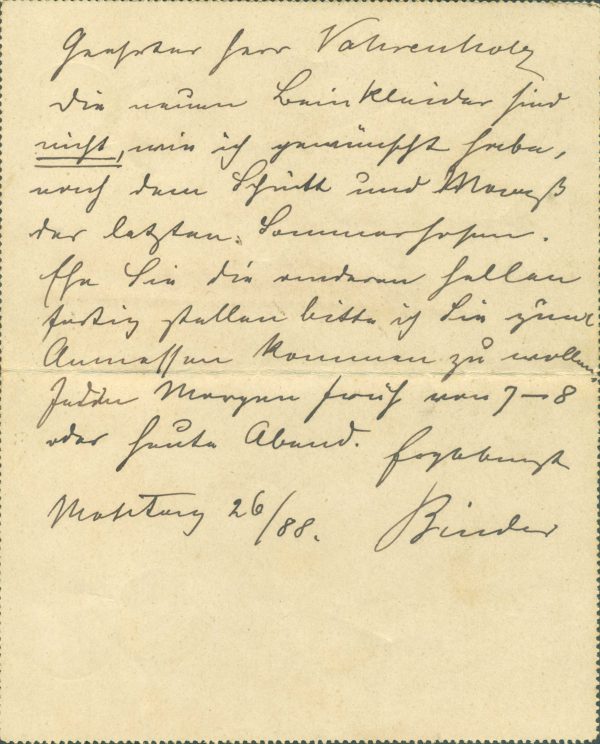 Geehrter Herr Vahrenholz
Die neuen Beinkleider sind
nicht, wie ich gewünscht habe,
nach dem Schnitt und Maaß
der letzten Sommerhosen.
Ehe Sie die anderen hellen
fertig stellen bitte ich Sie zum
Anmessen kommen zu wollen,
Jeden Morgen früh von 7–8
oder heute Abend. Ergebenst
26/88. Binder